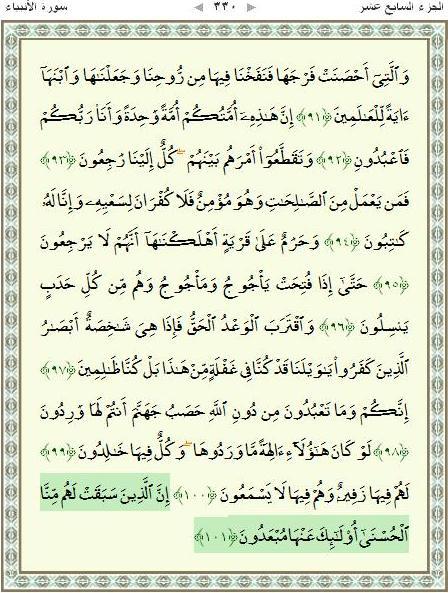 الجزء السابع عشر ٣٣٠ سورة الأنبياء
وَٱلَّتِىٓ أَحْصَنَتْ فَرْجَهَا فَنَفَخْنَا فِيهَا مِن رُّوحِنَا وَجَعَلْنَٰهَا وَٱبْنَهَآ
ءَايَةً لِّلْعَٰلَمِينَ ﴿٩١﴾ إِنَّ هَٰذِهِۦٓ أُمَّتُكُمْ أُمَّةً وَٰحِدَةً وَأَنَا۠ رَبُّكُمْ
فَٱعْبُدُونِ ﴿٩٢﴾ وَتَقَطَّعُوٓا۟ أَمْرَهُم بَيْنَهُمْ ۖ كُلٌّ إِلَيْنَا رَٰجِعُونَ ﴿٩٣﴾
فَمَن يَعْمَلْ مِنَ ٱلصَّٰلِحَٰتِ وَهُوَ مُؤْمِنٌ فَلَا كُفْرَانَ لِسَعْيِهِۦ وَإِنَّا لَهُۥ
كَٰتِبُونَ ﴿٩٤﴾ وَحَرَٰمٌ عَلَىٰ قَرْيَةٍ أَهْلَكْنَٰهَآ أَنَّهُمْ لَا يَرْجِعُونَ
﴿٩٥﴾ حَتَّىٰٓ إِذَا فُتِحَتْ يَأْجُوجُ وَمَأْجُوجُ وَهُم مِّن كُلِّ حَدَبٍ
يَنسِلُونَ ﴿٩٦﴾ وَٱقْتَرَبَ ٱلْوَعْدُ ٱلْحَقُّ فَإِذَا هِىَ شَٰخِصَةٌ أَبْصَٰرُ
ٱلَّذِينَ كَفَرُوا۟ يَٰوَيْلَنَا قَدْ كُنَّا فِى غَفْلَةٍ مِّنْ هَٰذَا بَلْ كُنَّا ظَٰلِمِينَ ﴿٩٧﴾
إِنَّكُمْ وَمَا تَعْبُدُونَ مِن دُونِ ٱللَّهِ حَصَبُ جَهَنَّمَ أَنتُمْ لَهَا وَٰرِدُونَ
﴿٩٨﴾ لَوْ كَانَ هَٰٓؤُلَآءِ ءَالِهَةً مَّا وَرَدُوهَا ۖ وَكُلٌّ فِيهَا خَٰلِدُونَ ﴿٩٩﴾
لَهُمْ فِيهَا زَفِيرٌ وَهُمْ فِيهَا لَا يَسْمَعُونَ ﴿١٠٠﴾ إِنَّ ٱلَّذِينَ سَبَقَتْ لَهُم مِّنَّا
ٱلْحُسْنَىٰٓ أُو۟لَٰٓئِكَ عَنْهَا مُبْعَدُونَ ﴿١٠١﴾